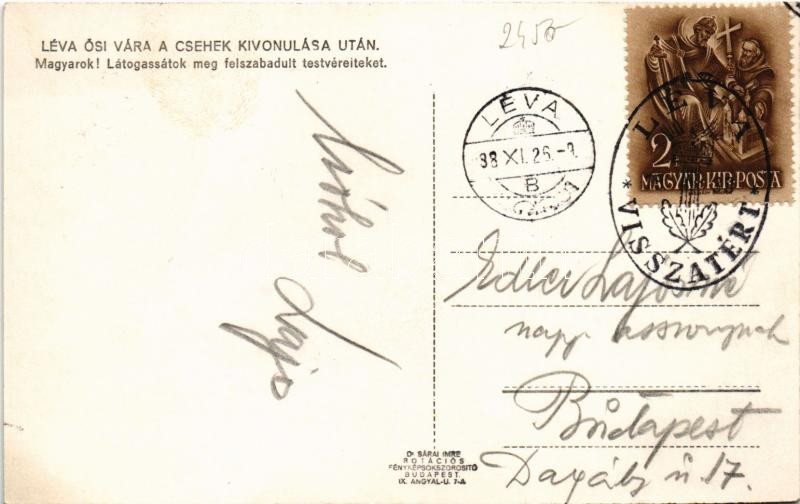 2450
LÉVA ŐSI VÁRA A CSEHEK KIVONULÁSA UTÁN.
Magyarok! Látogassátok meg felszabadult testvéreiteket.
LÉVA
38 XI. 26.
B
2
MAGYAR·KIR·POSTA
LÉVA
* VISSZATÉRT *
Lajos
Lajosné
nagy asszonynak
Budapest
u. 17.
Dr SÁRAI IMRE
ROTÁCIÓS
FÉNYKÉPSOKSZOROSITÓ
BUDAPEST.
IX. ANGYAL-U. 7-A